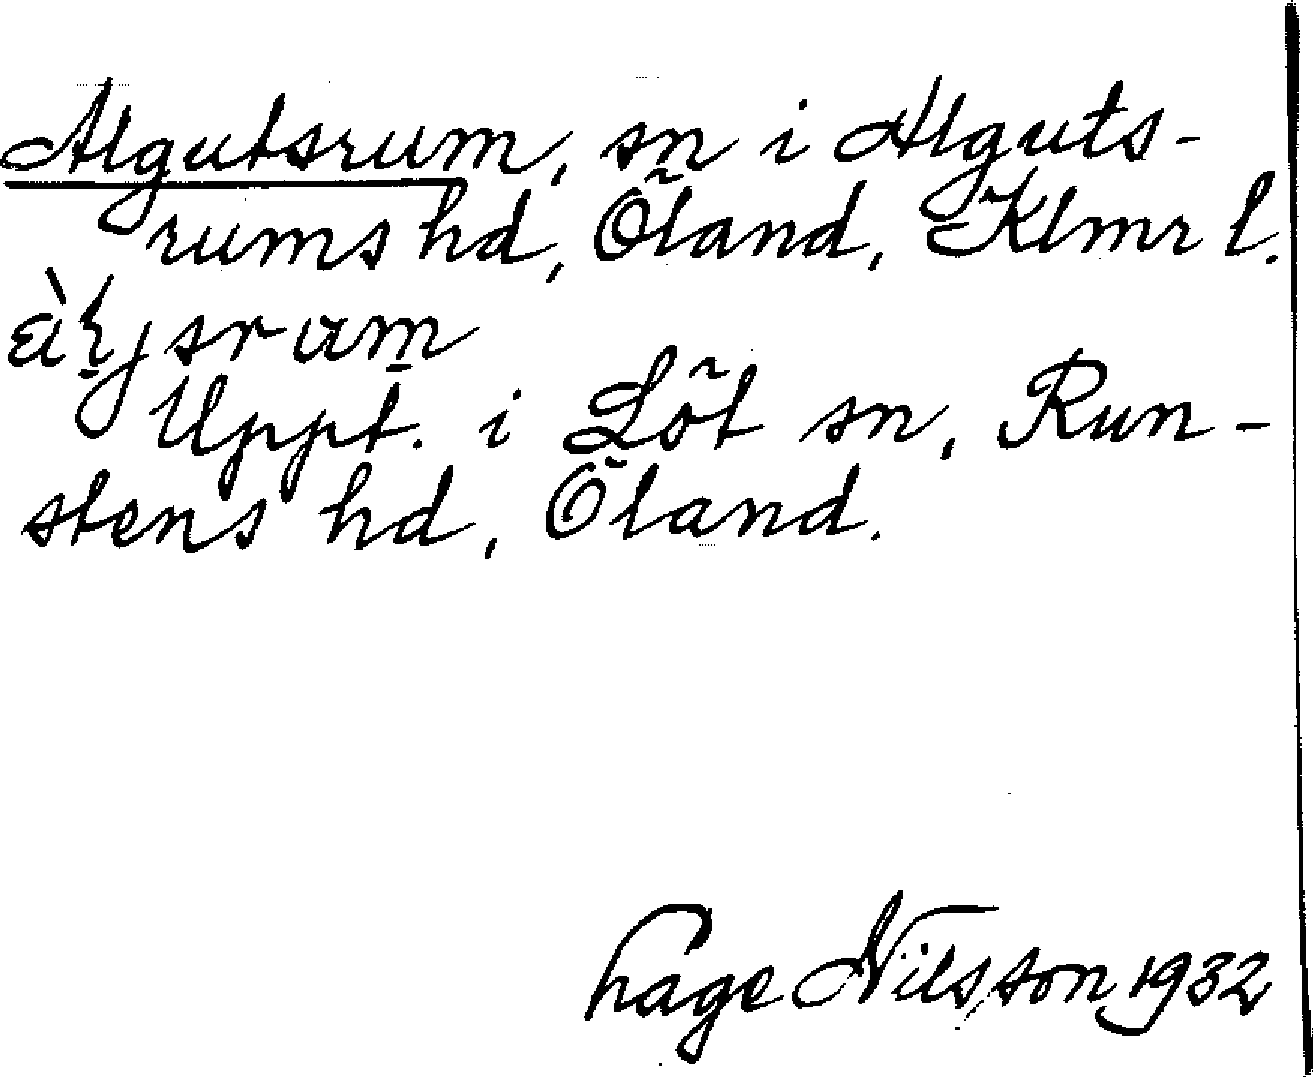 Algutsrum, sn i Alguts-
rums hd, Öland, Klmr l.
Uppt. i Löt sn, Run-
stens hd, Öland.
Åage Nilsson 1932